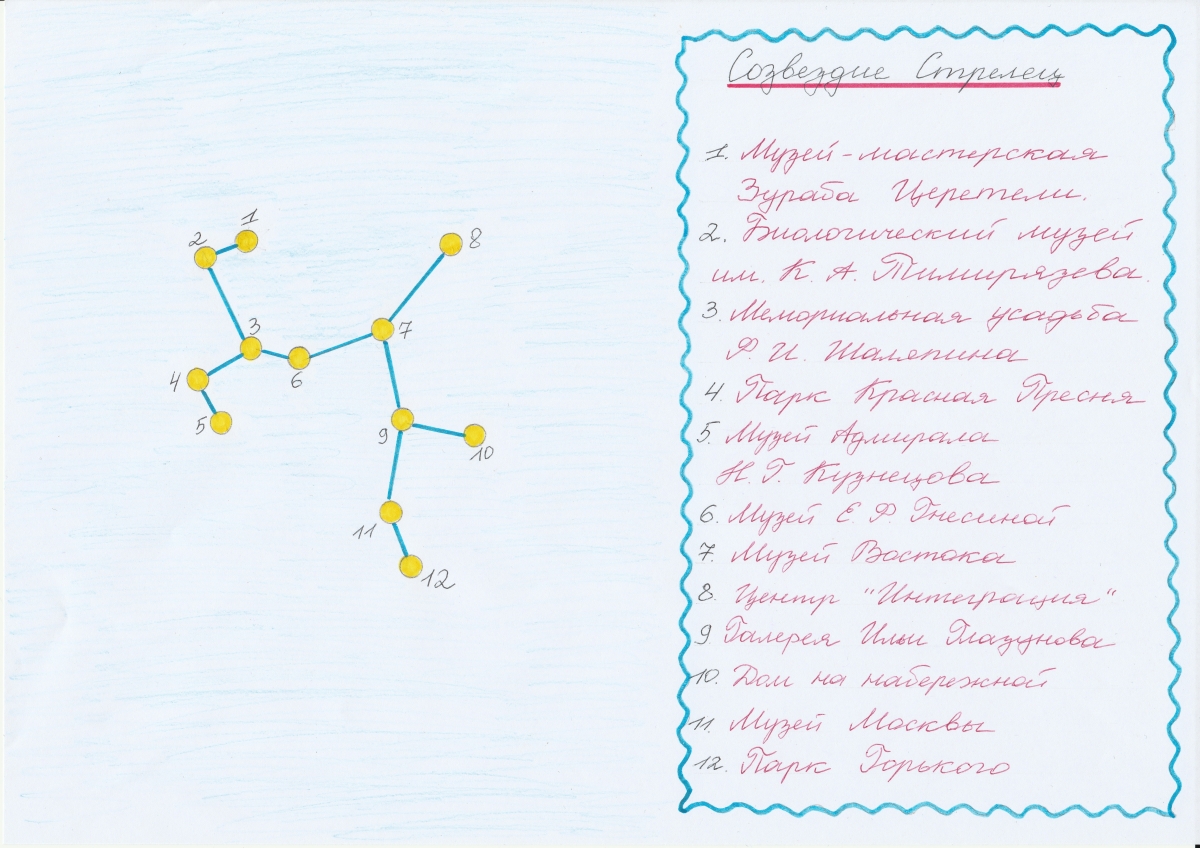 Созвездие Стрелец
1. Музей-мастерская
Зураба Церетели.
2. Биологический музей
им. К. А. Тимирязева.
3. Мемориальная усадьба
Ф. И. Шаляпина
4. Парк Красная Пресня
5. Музей Адмирала
Н. Г. Кузнецова
6. Музей Е. Ф. Гнесиной
7. Музей Востока
8. Центр "Интеграция"
9 Галерея Ильи Глазунова
10. Дом на набережной
11. Музей Москвы
12. Парк Горького
1
2
3
4
5
6
7
8
9
10
11
12